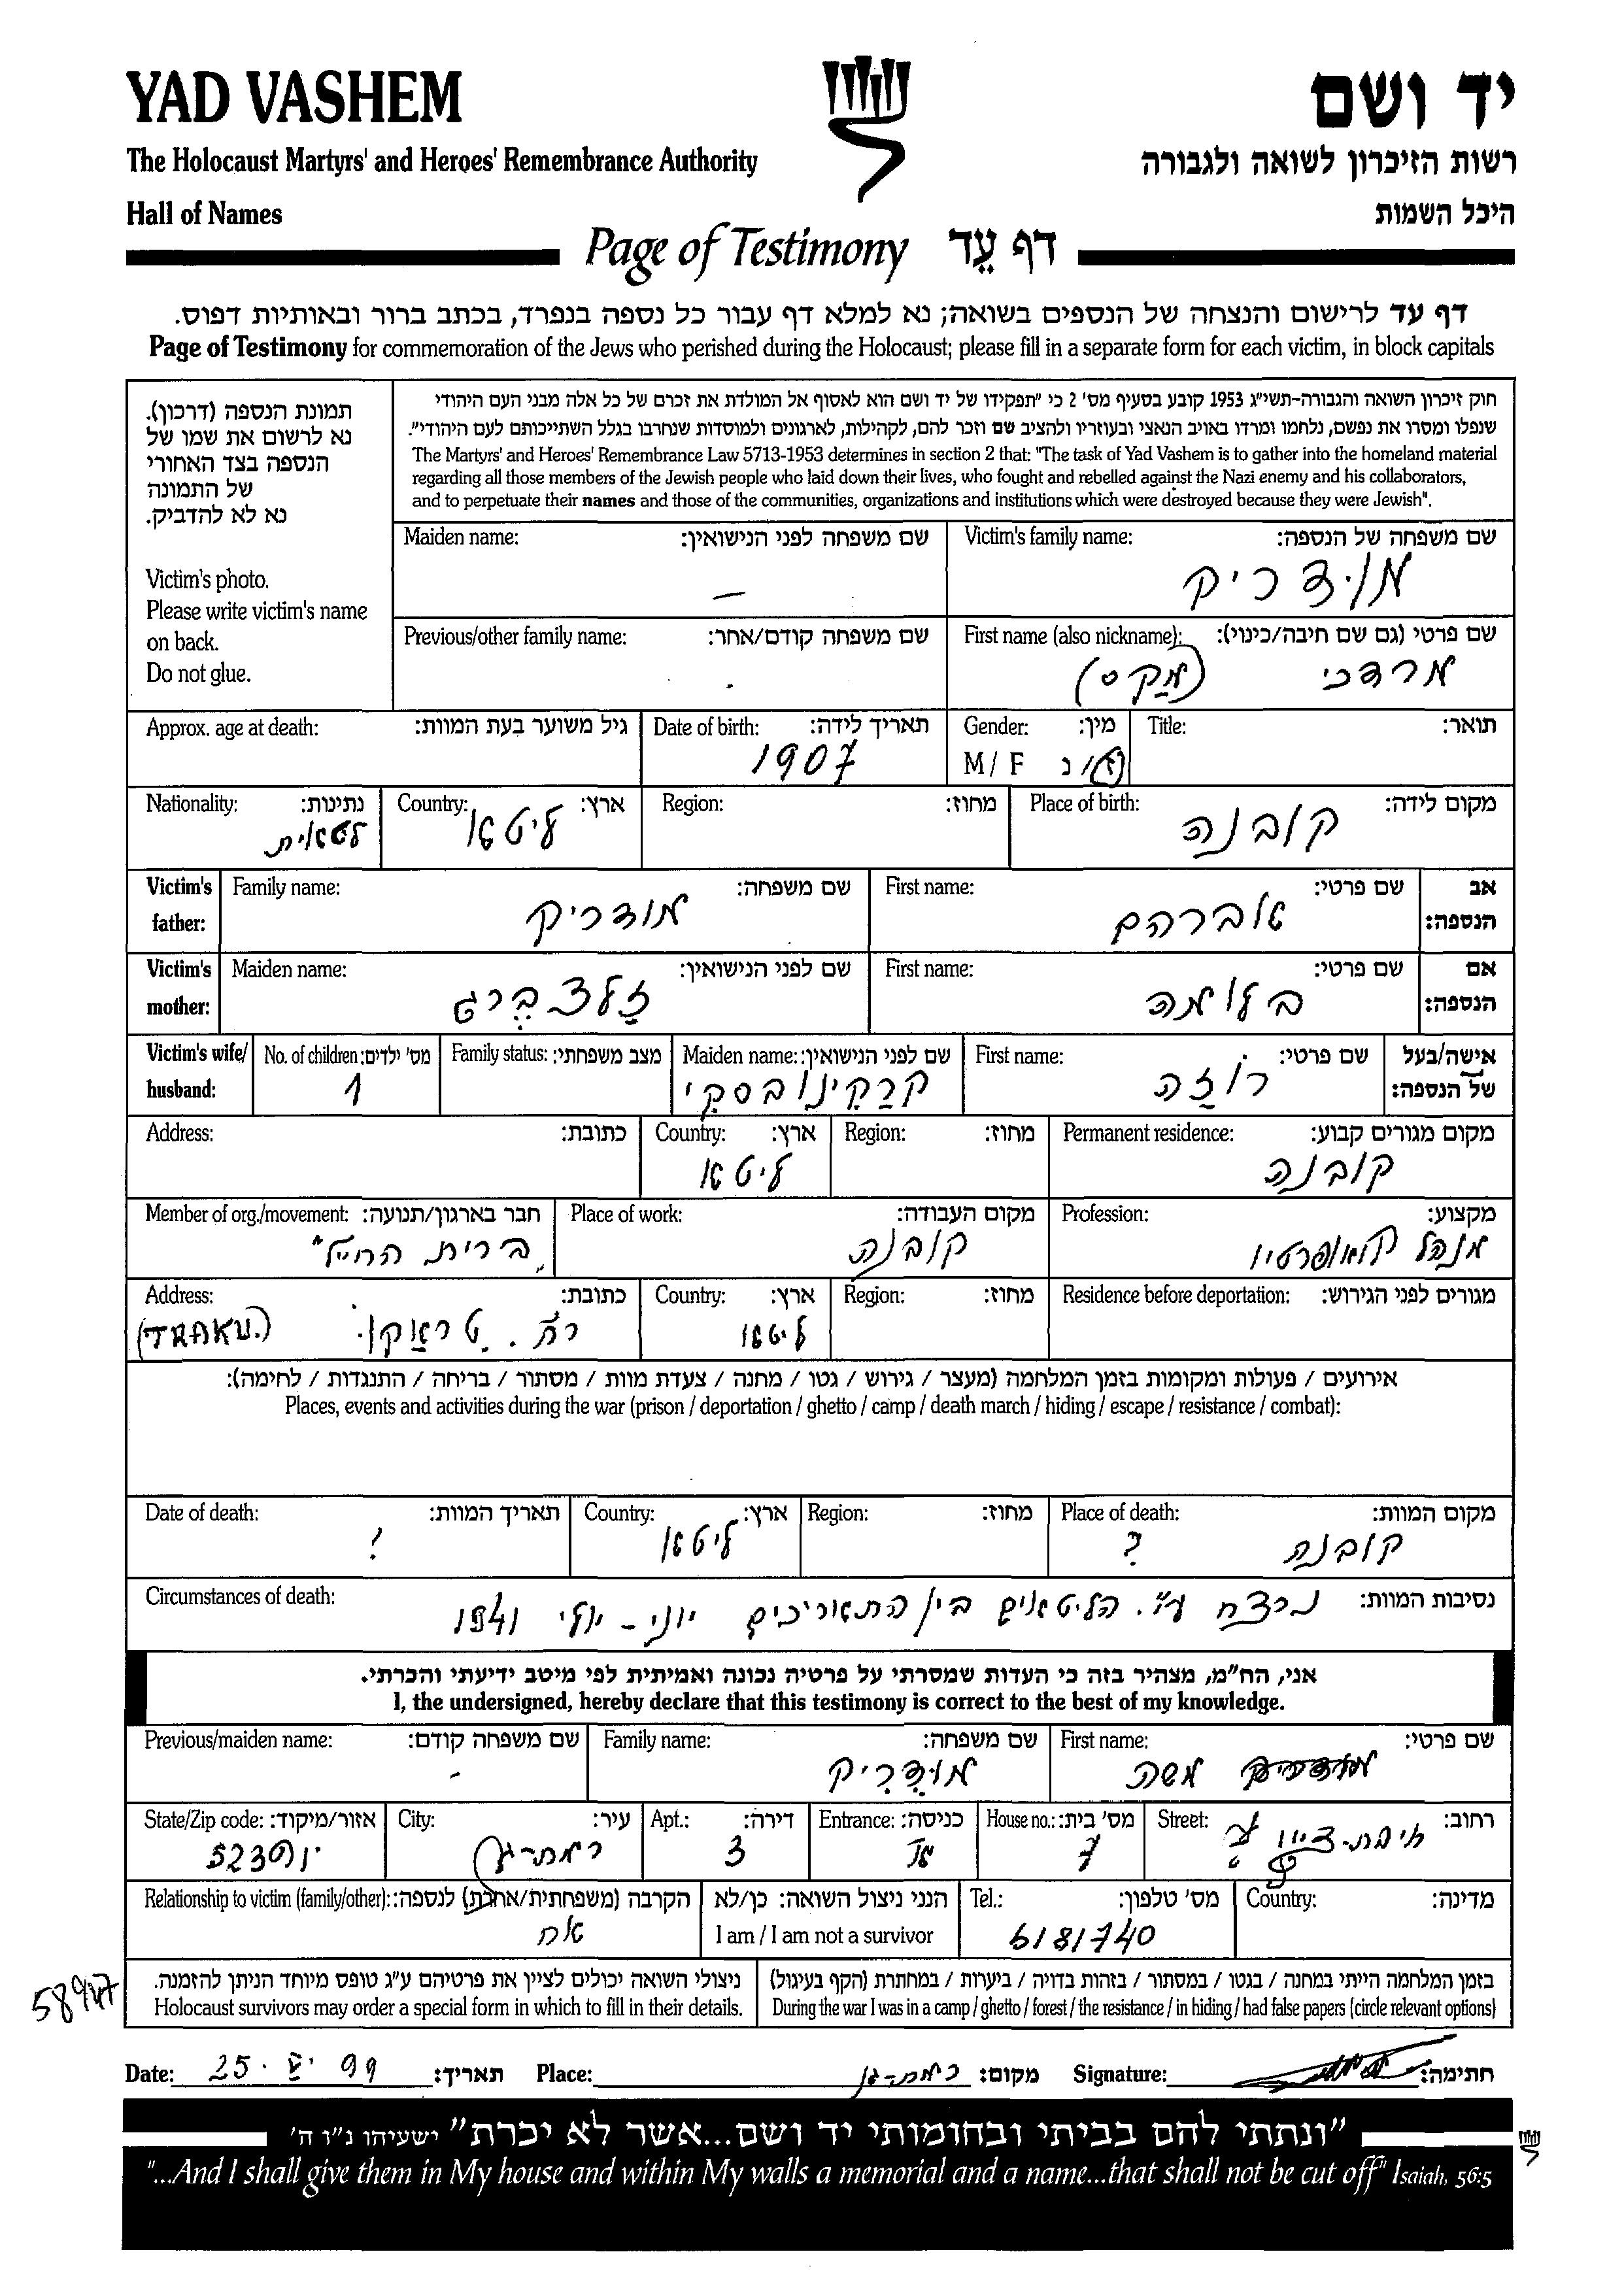 YAD VASHEM
יד ושם
The Holocaust Martyrs' and Heroes' Remembrance Authority
רשות הזיכרון לשואה ולגבורה
Hall of Names
היכל השמות
Page of Testimony דף עֵד
דף עד לרישום והנצחה של הנספים בשואה; נא למלא דף עבור כל נספה בנפרד, בכתב ברור ובאותיות דפוס.
Page of Testimony for commemoration of the Jews who perished during the Holocaust; please fill in a separate form for each victim, in block capitals
תמונת הנספה (דרכון).
נא לרשום את שמו של
הנספה בצד האחורי
של התמונה
נא לא להדביק.
Victim's photo.
Please write victim's name
on back.
Do not glue.
חוק זיכרון השואה והגבורה-תשי"ג 1953 קובע בסעיף מס' 2 כי "תפקידו של יד ושם הוא לאסוף אל המולדת את זכרם של כל אלה מבני העם היהודי
שנפלו ומסרו את נפשם, נלחמו ומרדו באויב הנאצי ובעוזריו ולהציב שם וזכר להם, לקהילות, לארגונים ולמוסדות שנחרבו בגלל השתייכותם לעם היהודי".
The Martyrs' and Heroes' Remembrance Law 5713-1953 determines in section 2 that: "The task of Yad Vashem is to gather into the homeland material
regarding all those members of the Jewish people who laid down their lives, who fought and rebelled against the Nazi enemy and his collaborators,
and to perpetuate their names and those of the communities, organizations and institutions which were destroyed because they were Jewish".
שם משפחה של הנספה: Victim's family name:
מודריק
שם משפחה לפני הנישואין: Maiden name:
–
שם פרטי (גם שם חיבה/כינוי): First name (also nickname):
מרדכי (מקס)
שם משפחה קודם/אחר: Previous/other family name:
-
תואר: Title:
מין: Gender:
ז/נ M / F
תאריך לידה: Date of birth:
1907
גיל משוער בעת המוות: Approx. age at death:
מקום לידה: Place of birth:
קובנה
מחוז: Region:
ארץ: Country:
ליטא
נתינות: Nationality:
לטאית
אב הנספה: Victim's father:
שם פרטי: First name:
אברהם
שם משפחה: Family name:
מודריק
אם הנספה: Victim's mother:
שם פרטי: First name:
בלומה
שם לפני הנישואין: Maiden name:
זַלצבֶרג
אישה/בעל של הנספה: Victim's wife/ husband:
שם פרטי: First name:
רוֹזָה
שם לפני הנישואין: Maiden name:
קרקינובסקי
מצב משפחתי: Family status:
מס' ילדים: No. of children:
1
מקום מגורים קבוע: Permanent residence:
קובנה
מחוז: Region:
ארץ: Country:
ליטא
כתובת: Address:
מקצוע: Profession:
מנהל קואופרטיו
מקום העבודה: Place of work:
קובנה
חבר בארגון/תנועה: Member of org./movement:
"ברית החייל"
מגורים לפני הגירוש: Residence before deportation:
מחוז: Region:
ארץ: Country:
ליטא
כתובת: Address:
רח. טראקו. (TRAKU.)
אירועים / פעולות ומקומות בזמן המלחמה (מעצר / גירוש / גטו / מחנה / צעדת מוות / מסתור / בריחה / התנגדות / לחימה):
Places, events and activities during the war (prison / deportation / ghetto / camp / death march / hiding / escape / resistance / combat):
מקום המוות: Place of death:
קובנה ?
מחוז: Region:
ארץ: Country:
ליטא
תאריך המוות: Date of death:
?
נסיבות המוות: Circumstances of death:
נרצח ע"י. הליטאים בין התאריכים יוני - יולי 1941
אני, הח"מ, מצהיר בזה כי העדות שמסרתי על פרטיה נכונה ואמיתית לפי מיטב ידיעתי והכרתי.
I, the undersigned, hereby declare that this testimony is correct to the best of my knowledge.
שם פרטי: First name:
משה
שם משפחה: Family name:
מוּדריק
שם משפחה קודם: Previous/maiden name:
-
רחוב: Street:
מס' בית: House no.:
7
כניסה: Entrance:
א'
דירה: Apt.:
3
עיר: City:
רמת-גן
אזור/מיקוד: State/Zip code:
מדינה: Country:
מס' טלפון: Tel.:
6181740
הנני ניצול השואה: כן/לא
I am / I am not a survivor
הקרבה (משפחתית/אחרת) לנספה: Relationship to victim (family/other):
אח
בזמן המלחמה הייתי במחנה / בגטו / במסתור / בזהות בדויה / ביערות / במחתרת (הקף בעיגול)
During the war I was in a camp / ghetto / forest / the resistance / in hiding / had false papers (circle relevant options)
ניצולי השואה יכולים לציין את פרטיהם ע"ג טופס מיוחד הניתן להזמנה.
Holocaust survivors may order a special form in which to fill in their details.
Date: 25. V. 99 תאריך: Place: רמת-גן מקום: Signature: חתימה:
"ונתתי להם בביתי ובחומותי יד ושם...אשר לא יכרת" ישעיהו נ"ו ה'
"...And I shall give them in My house and within My walls a memorial and a name...that shall not be cut off" Isaiah, 56:5